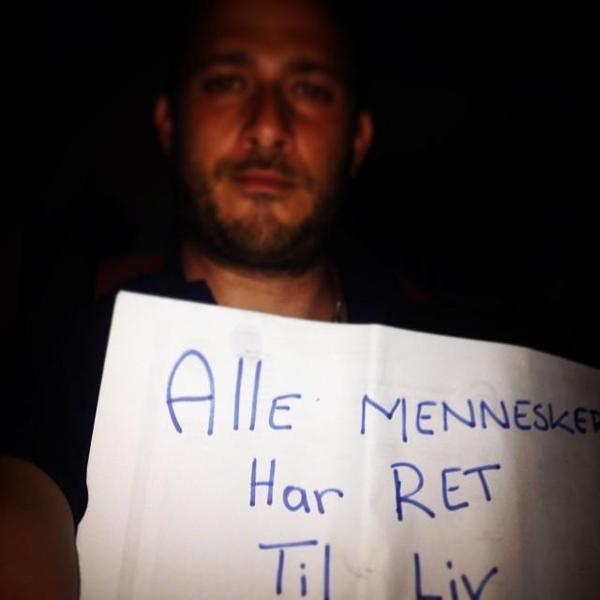 Alle MENNESKER
Har RET
Til Liv